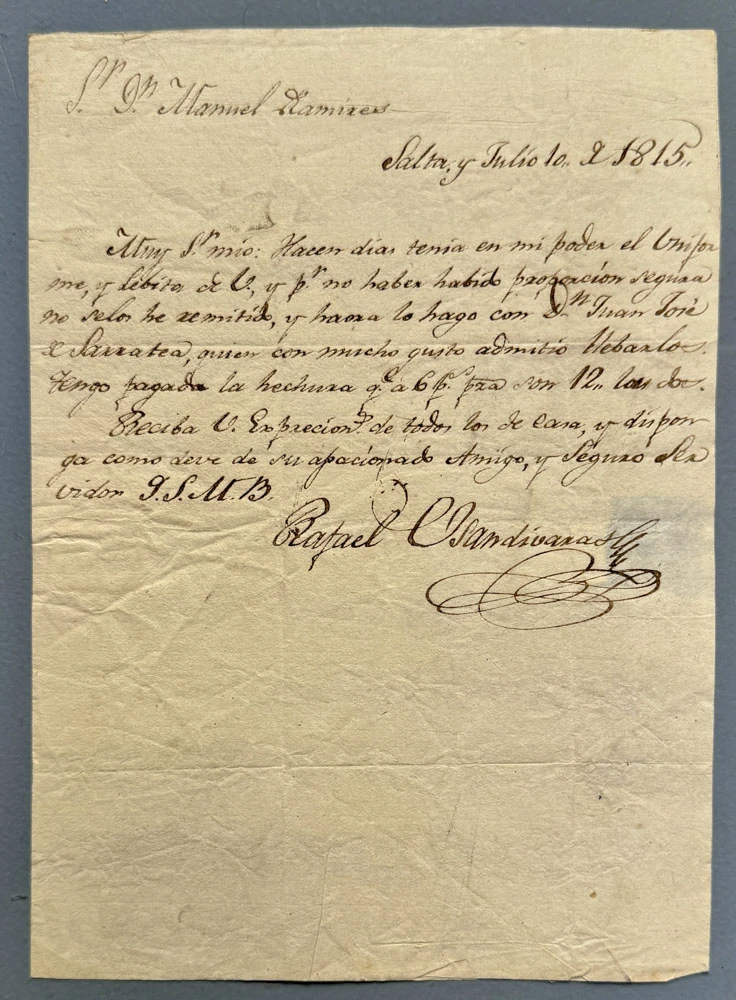 S.r D.n Manuel Ramires
Salta, y Julio 10,, d 1815,,
Muy S.r mio: Hacen dias tenia en mi poder el Unifor
me, y lebita de V, y p.r no haber habido proporcion segura
no selos he remitido, y haora lo hago con D.n Juan José
d Sarratea, quien con mucho gusto admitio llebarlos.
tengo pagada la hechura q.e a 6 p.s pza son 12,, los dos.
Reciba V. Exprecion.s de todos los de casa, y dispon
ga como deve de su apacionado Amigo, y seguro Ser
vidor Q. S. M. B.
Rafael Usandivaras